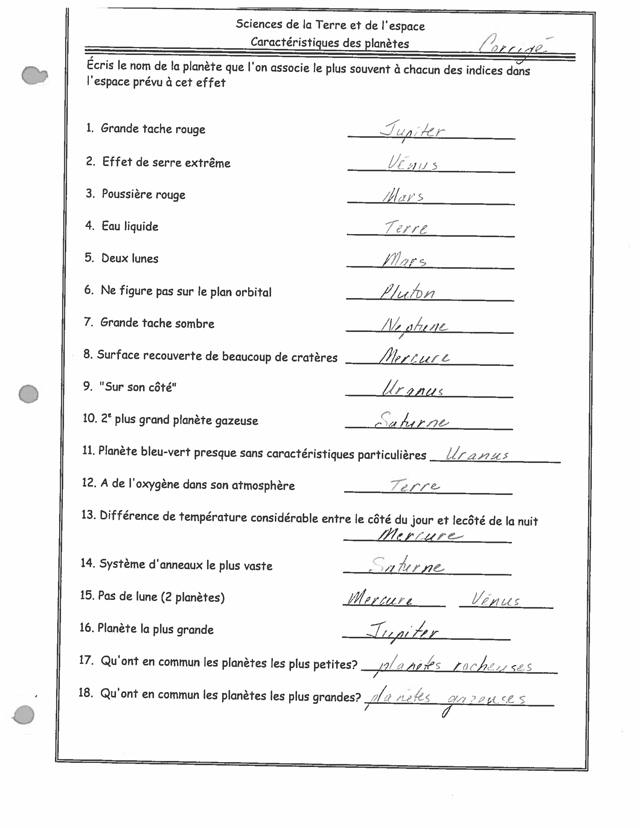 Sciences de la Terre et de l'espace
Caractéristiques des planètes Corrigé
Écris le nom de la planète que l'on associe le plus souvent à chacun des indices dans
l'espace prévu à cet effet
1. Grande tache rouge Jupiter
2. Effet de serre extrême Vénus
3. Poussière rouge Mars
4. Eau liquide Terre
5. Deux lunes Mars
6. Ne figure pas sur le plan orbital Pluton
7. Grande tache sombre Neptune
8. Surface recouverte de beaucoup de cratères Mercure
9. "Sur son côté" Uranus
10. 2e plus grand planète gazeuse Saturne
11. Planète bleu-vert presque sans caractéristiques particulières Uranus
12. A de l'oxygène dans son atmosphère Terre
13. Différence de température considérable entre le côté du jour et lecôté de la nuit
Mercure
14. Système d'anneaux le plus vaste Saturne
15. Pas de lune (2 planètes) Mercure Vénus
16. Planète la plus grande Jupiter
17. Qu'ont en commun les planètes les plus petites? planètes rocheuses
18. Qu'ont en commun les planètes les plus grandes? planètes gazeuses